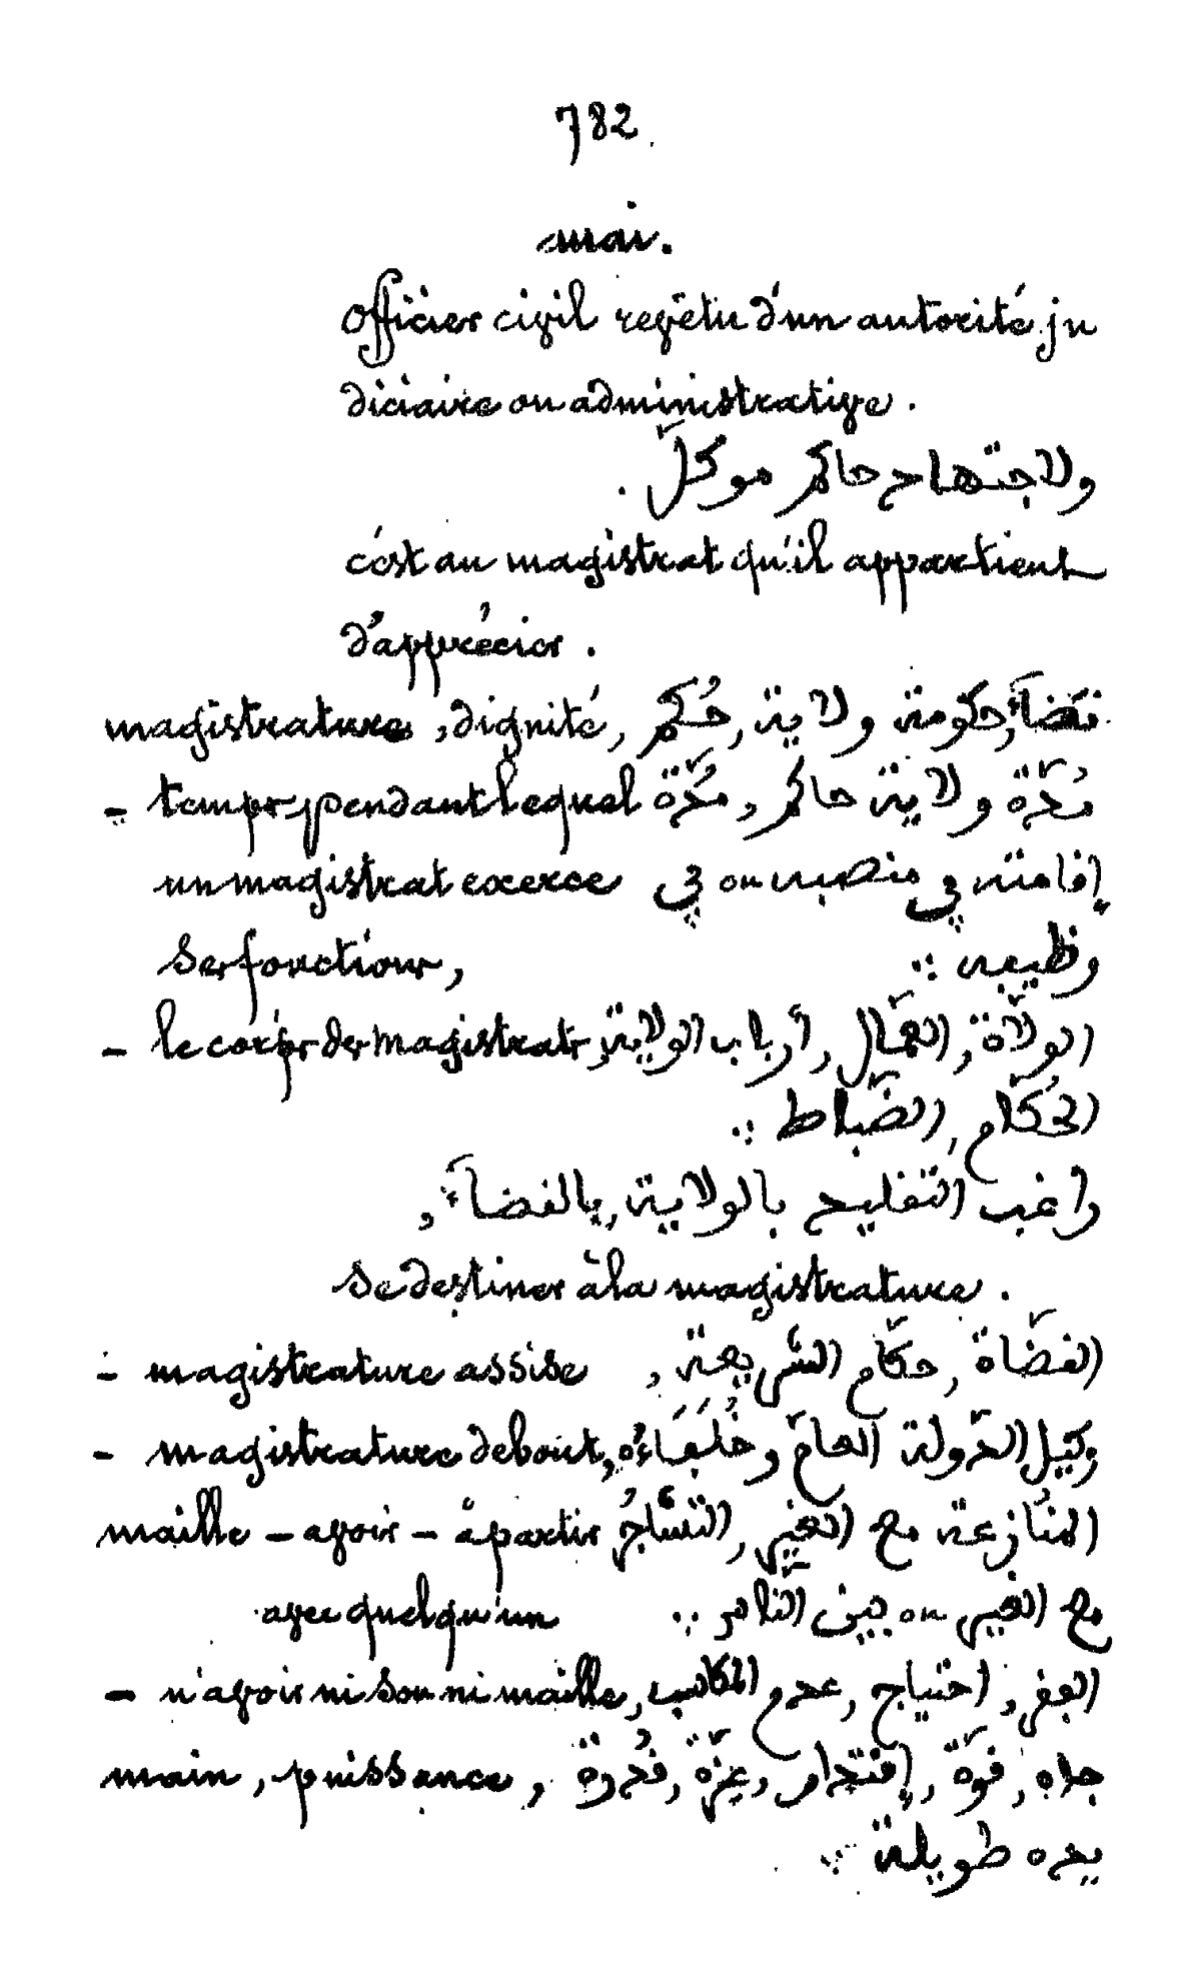 782.
mai.
officier civil revêtu d'un autorité ju
diciaire ou administrative.
والاجتهاد حاكم موكّل.
c'est au magistrat qu'il appartient
d'apprécier.
magistrature, dignité, قضآء, حكومة ولاية, حُكم
- temps pendant lequel مُدّة ولاية حاكم, مُدّة
un magistrat exerce إقامته في منصبه ou في
ses fonctions, وظيفه
- le corps des magistrats, الولاّة, العمّال, أرباب الولاية
الحُكّام, الضّباط
راغب التقليد بالولاية, بالقضآء,
se destiner à la magistrature.
- magistrature assise القضّاة, حكّام الشّريعة,
- magistrature debout, وكيل الدّولة العامّ وخُلَفَاءُه
maille - avoir - à partir المنازعة مع الغير, التشّاجُر
avec quelqu'un مع الغير ou بين النّاس
- n'avoir ni sou ni maille, الفقر, احتياج, عدم المكاسب
main, puissance, جاه, قوّة, إقتدار, عِزّة, قُدرة
يده طويلة